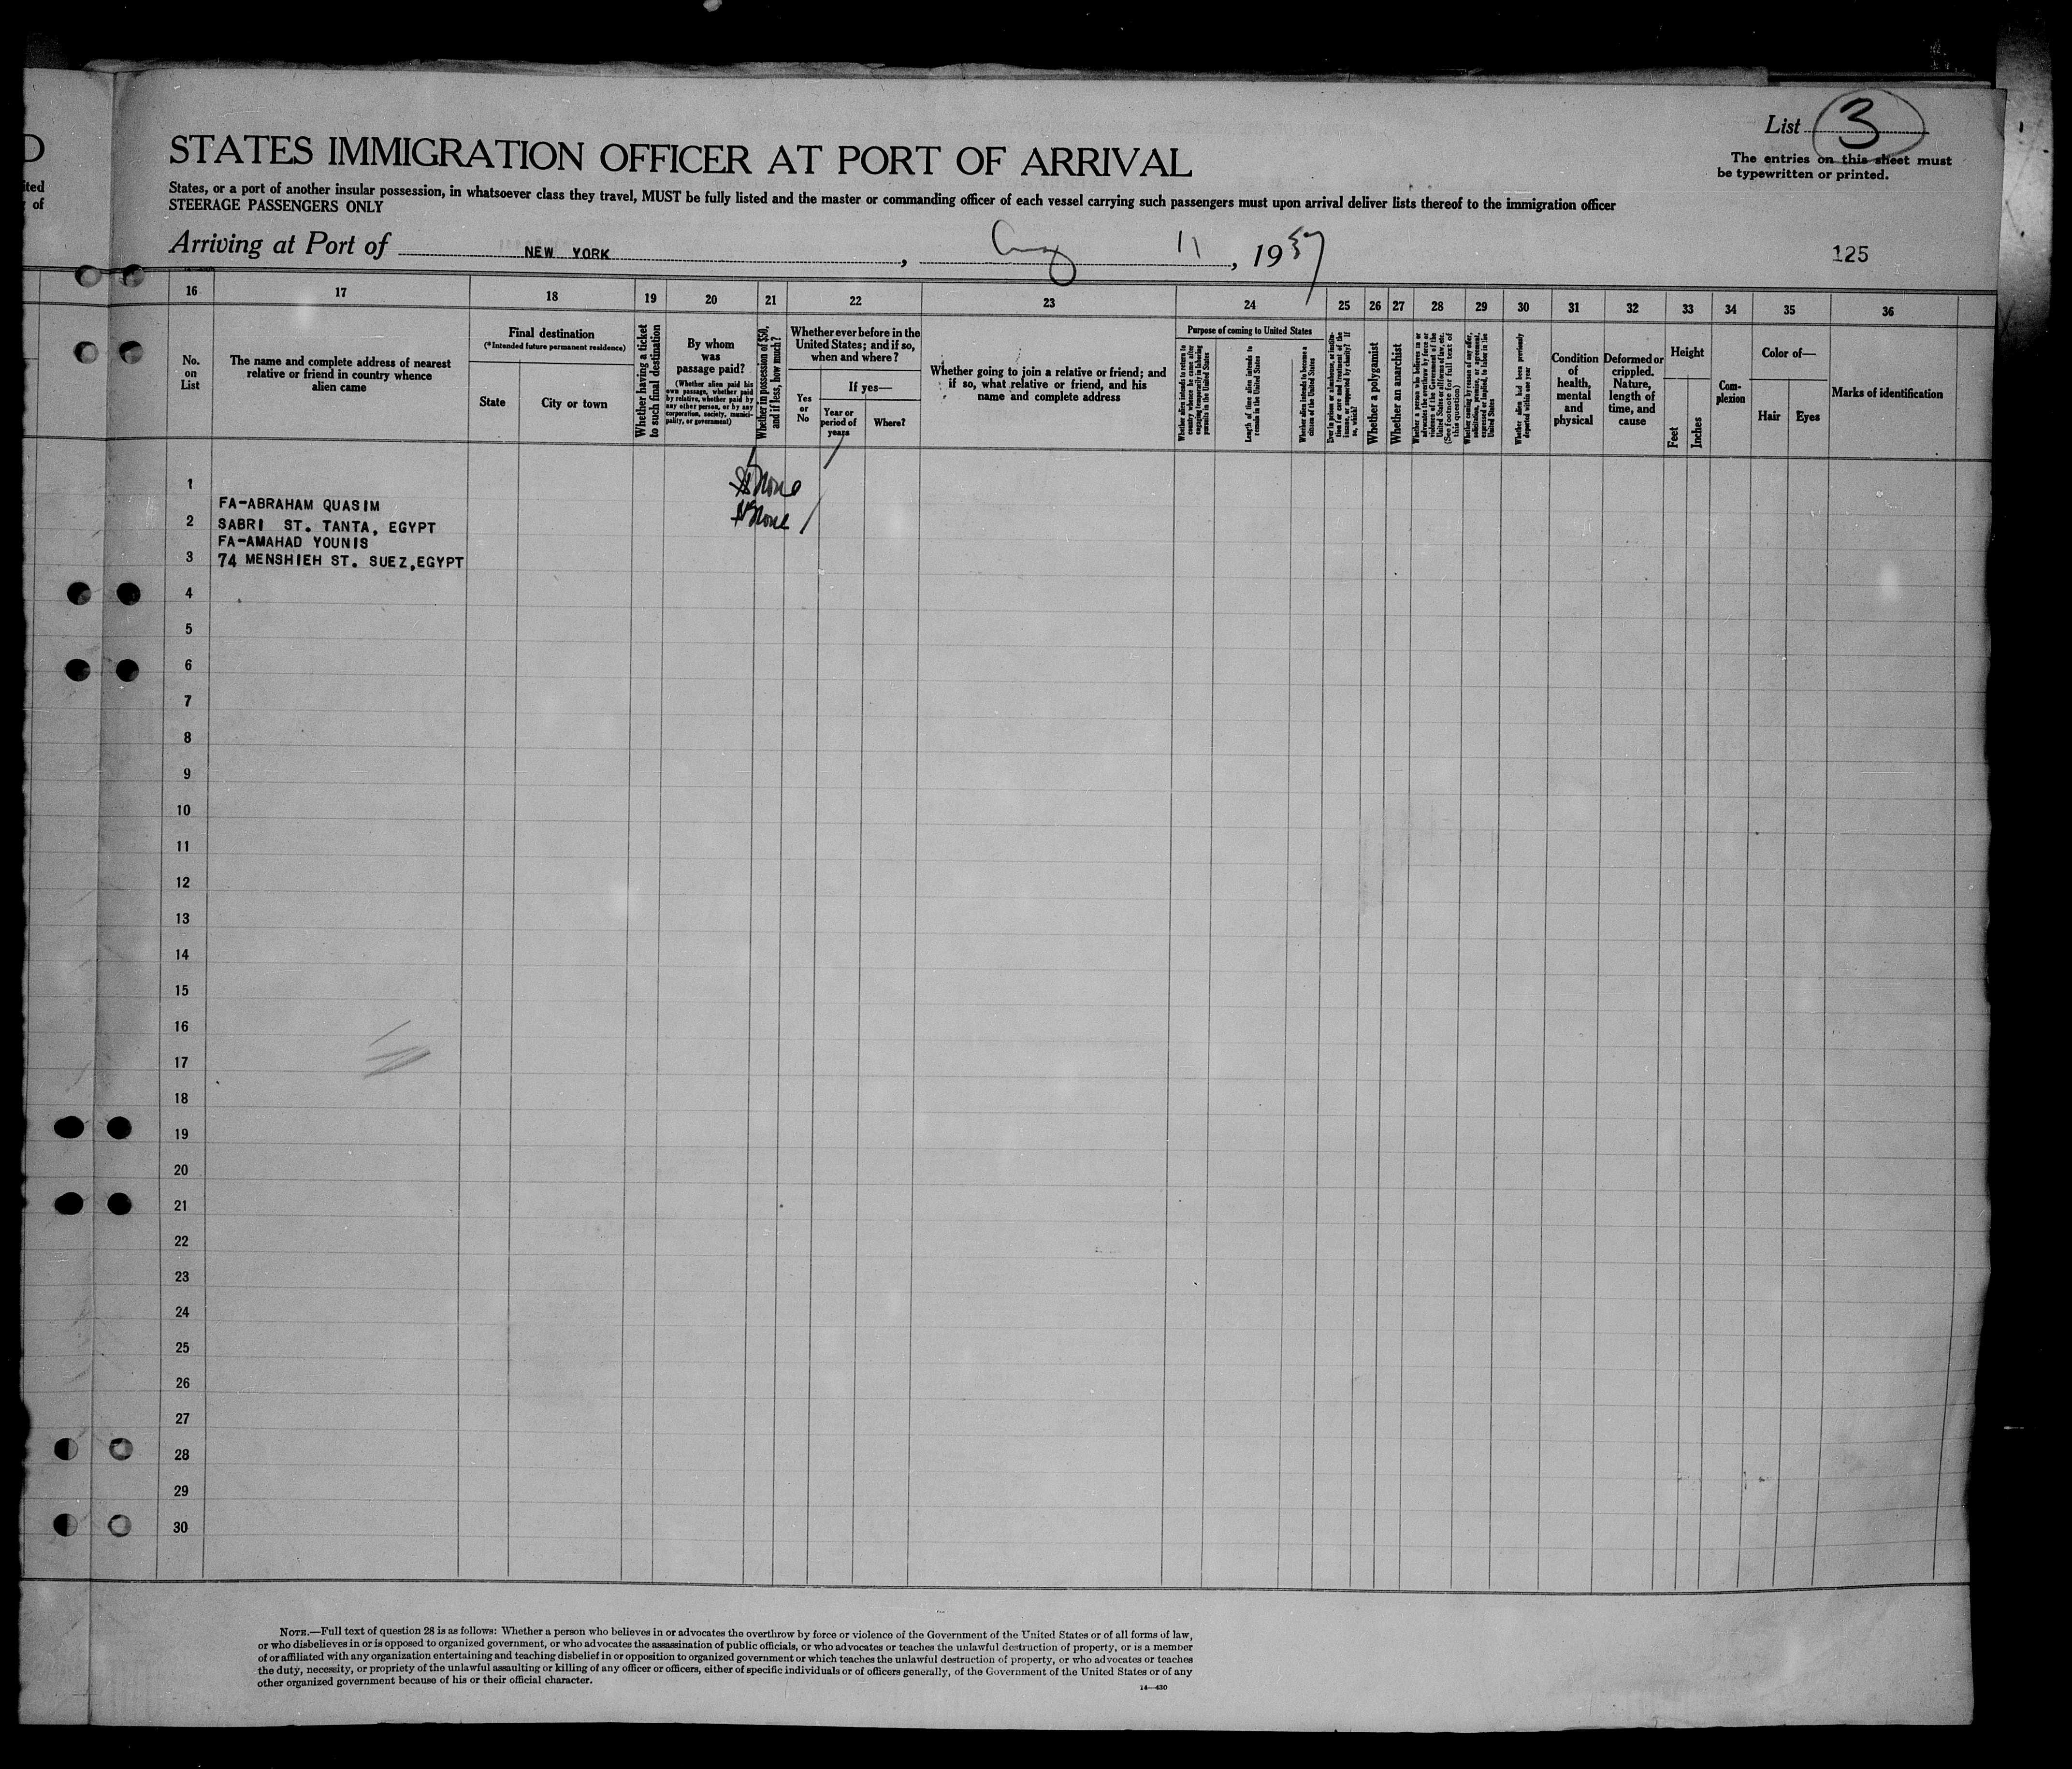 D
ited
of
List 3
The entries on this sheet must
be typewritten or printed.
STATES IMMIGRATION OFFICER AT PORT OF ARRIVAL
States, or a port of another insular possession, in whatsoever class they travel, MUST be fully listed and the master or commanding officer of each vessel carrying such passengers must upon arrival deliver lists thereof to the immigration officer
STEERAGE PASSENGERS ONLY
Arriving at Port of NEW YORK, Aug 11, 1937
125
16 17 18 19 20 21 22 23 24 25 26 27 28 29 30 31 32 33 34 35 36
No.
on
List
The name and complete address of nearest
relative or friend in country whence
alien came
Final destination
(*Intended future permanent residence)
State
City or town
Whether having a ticket
to such final destination
By whom
was
passage paid?
(Whether alien paid his
own passage, whether paid
by relative, whether paid by
any other person, or by any
corporation, society, munici-
pality, or government)
Whether in possession of $50,
and if less, how much?
Whether ever before in the
United States; and if so,
when and where?
Yes
or
No
If yes—
Year or
period of
years
Where?
Whether going to join a relative or friend; and
if so, what relative or friend, and his
name and complete address
Purpose of coming to United States
Whether alien intends to return to
country whence he came after
engaging temporarily in laboring
pursuits in the United States
Length of time alien intends to
remain in the United States
Whether alien intends to become a
citizen of the United States
Ever in prison or almshouse, or institu-
tion for care and treatment of the
insane, or supported by charity? If
so, which?
Whether a polygamist
Whether an anarchist
Whether a person who believes in or
advocates the overthrow by force or
violence of the Government of the
United States or all forms of law, etc.
(See footnote for full text of
this question)
Whether coming by reason of any offer,
solicitation, promise, or agreement,
expressed or implied, to labor in the
United States
Whether alien had been previously
deported within one year
Condition
of
health,
mental
and
physical
Deformed or
crippled.
Nature,
length of
time, and
cause
Height
Feet
Inches
Com-
plexion
Color of—
Hair
Eyes
Marks of identification
1
None
FA-ABRAHAM QUASIM
2 SABRI ST. TANTA, EGYPT
None
FA-AMAHAD YOUNIS
3 74 MENSHIEH ST. SUEZ,EGYPT
4
5
6
7
8
9
10
11
12
13
14
15
16
17
18
19
20
21
22
23
24
25
26
27
28
29
30
NOTE.—Full text of question 28 is as follows: Whether a person who believes in or advocates the overthrow by force or violence of the Government of the United States or of all forms of law,
or who disbelieves in or is opposed to organized government, or who advocates the assassination of public officials, or who advocates or teaches the unlawful destruction of property, or is a member
of or affiliated with any organization entertaining and teaching disbelief in or opposition to organized government or which teaches the unlawful destruction of property, or who advocates or teaches
the duty, necessity, or propriety of the unlawful assaulting or killing of any officer or officers, either of specific individuals or of officers generally, of the Government of the United States or of any
other organized government because of his or their official character.
14—430